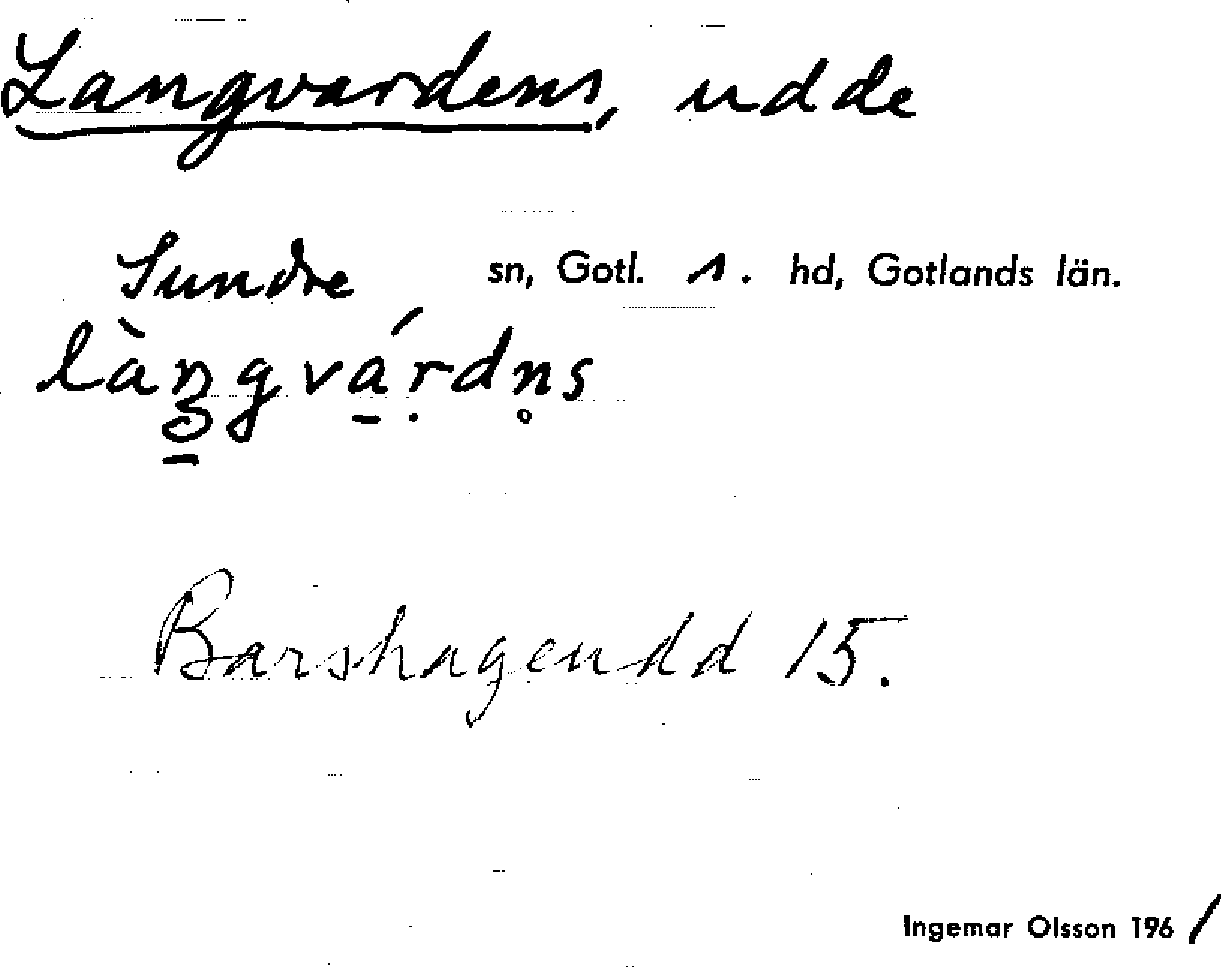 Langvardens, udde
Sundre sn, Gotl. 1. hd, Gotlands län.
làŋgvárdn̥s
Barshageudd 15.
Ingemar Olsson 1961